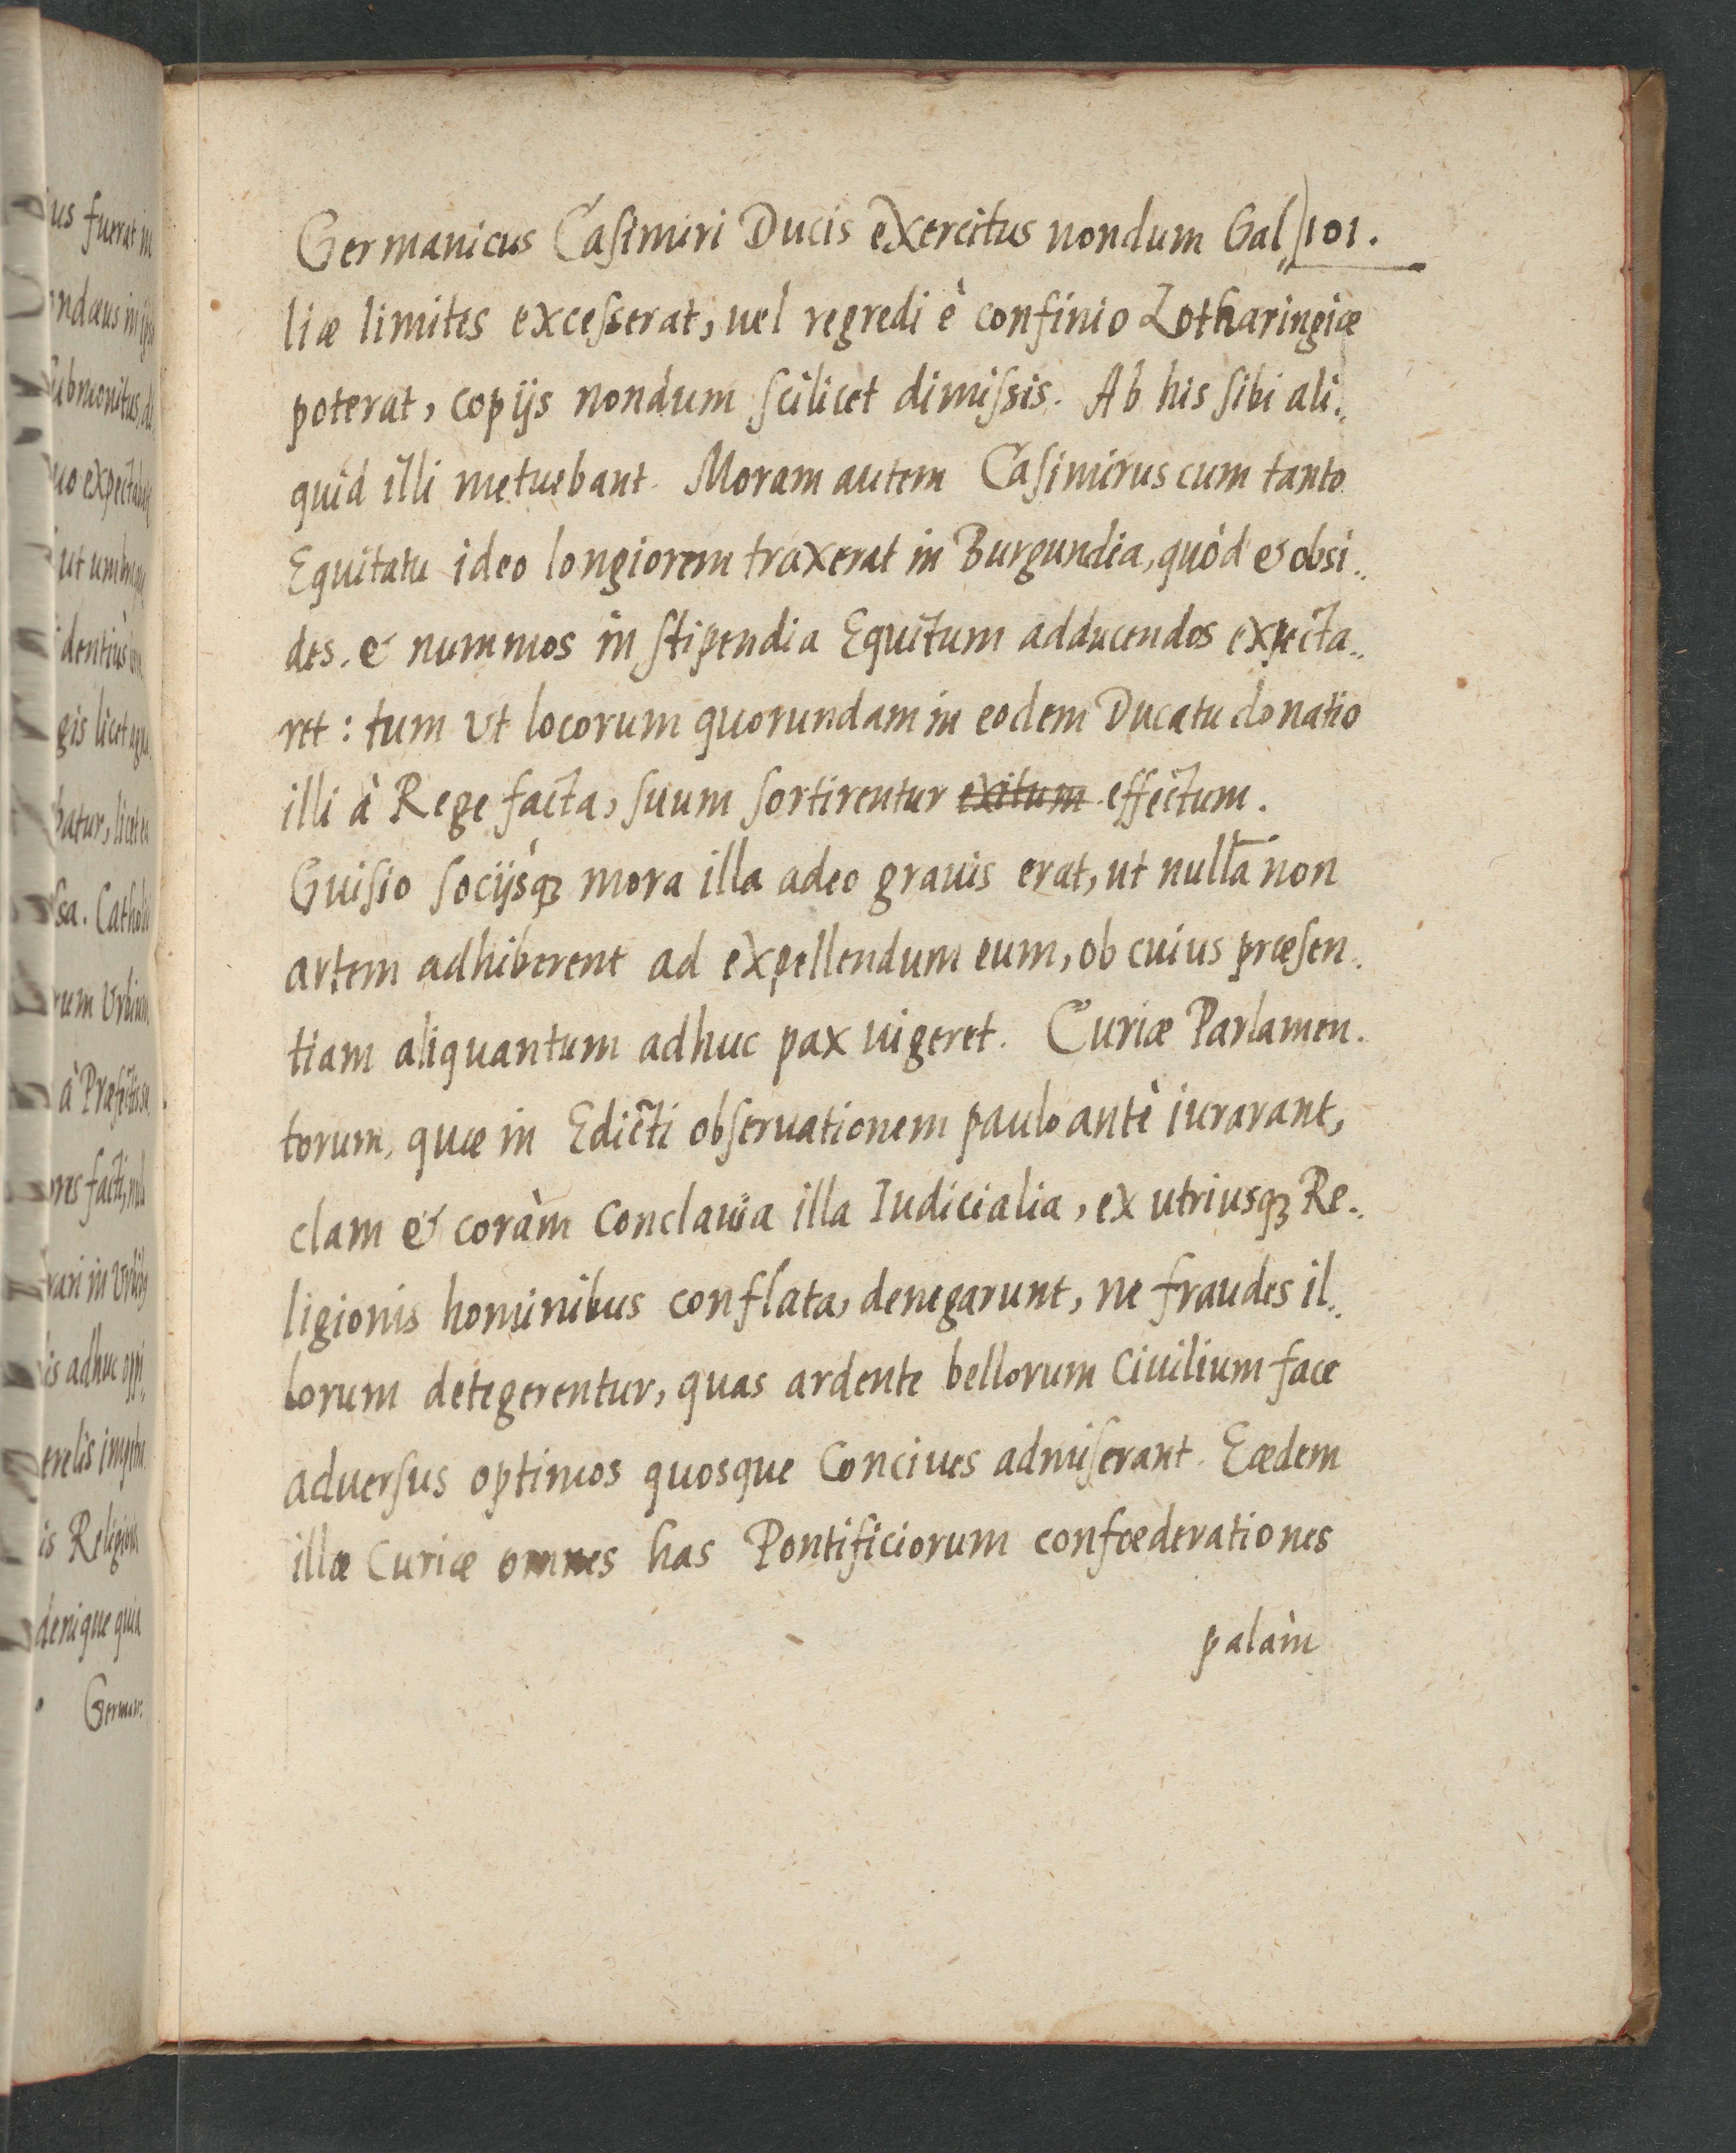 Germanicus Casimiri Ducis exercitus nondum Gal„ 101.
liæ limites excesserat, uel regredi è confinio Lotharingiæ
poterat, copijs nondum scilicet dimissis. Ab his sibi ali„
quid illi metuebant. Moram autem Casimirus cum tanto
Equitatu ideo longiorem traxerat in Burgundia, quòd & obsi„
des, & nummos in stipendia Equitum adducendos expecta„
ret: tum ut locorum quorundam in eodem Ducatu donatio
illi à Rege facta, suum sortirentur exitum effectum.
Guisio socijsqꝫ mora illa adeo grauis erat, ut nullā non
artem adhiberent ad expellendum eum, ob cuius præsen„
tiam aliquantum adhuc pax uigeret. Curiæ Parlamen„
torum, quæ in Edicti obseruationem paulo antè iurarant,
clam & coràm Conclauia illa Iudicialia, ex utriusqꝫ Re„
ligionis hominibus conflata, denegarunt, ne fraudes il„
lorum detegerentur, quas ardente bellorum Ciuilium face
aduersus optimos quosque Conciues admiserant. Eædem
illæ Curiæ omnes has Pontificiorum confœderationes
palàm
us fuerat in
ubmonitus, di
ut umbram
dentiùs
gis licet
batur, licet ea
sa. Catholi
rum Urbium
à Præfectis
res facti,
rari in Urbibꝫ
is adhuc oppi
is Religionis
denique quia
German.